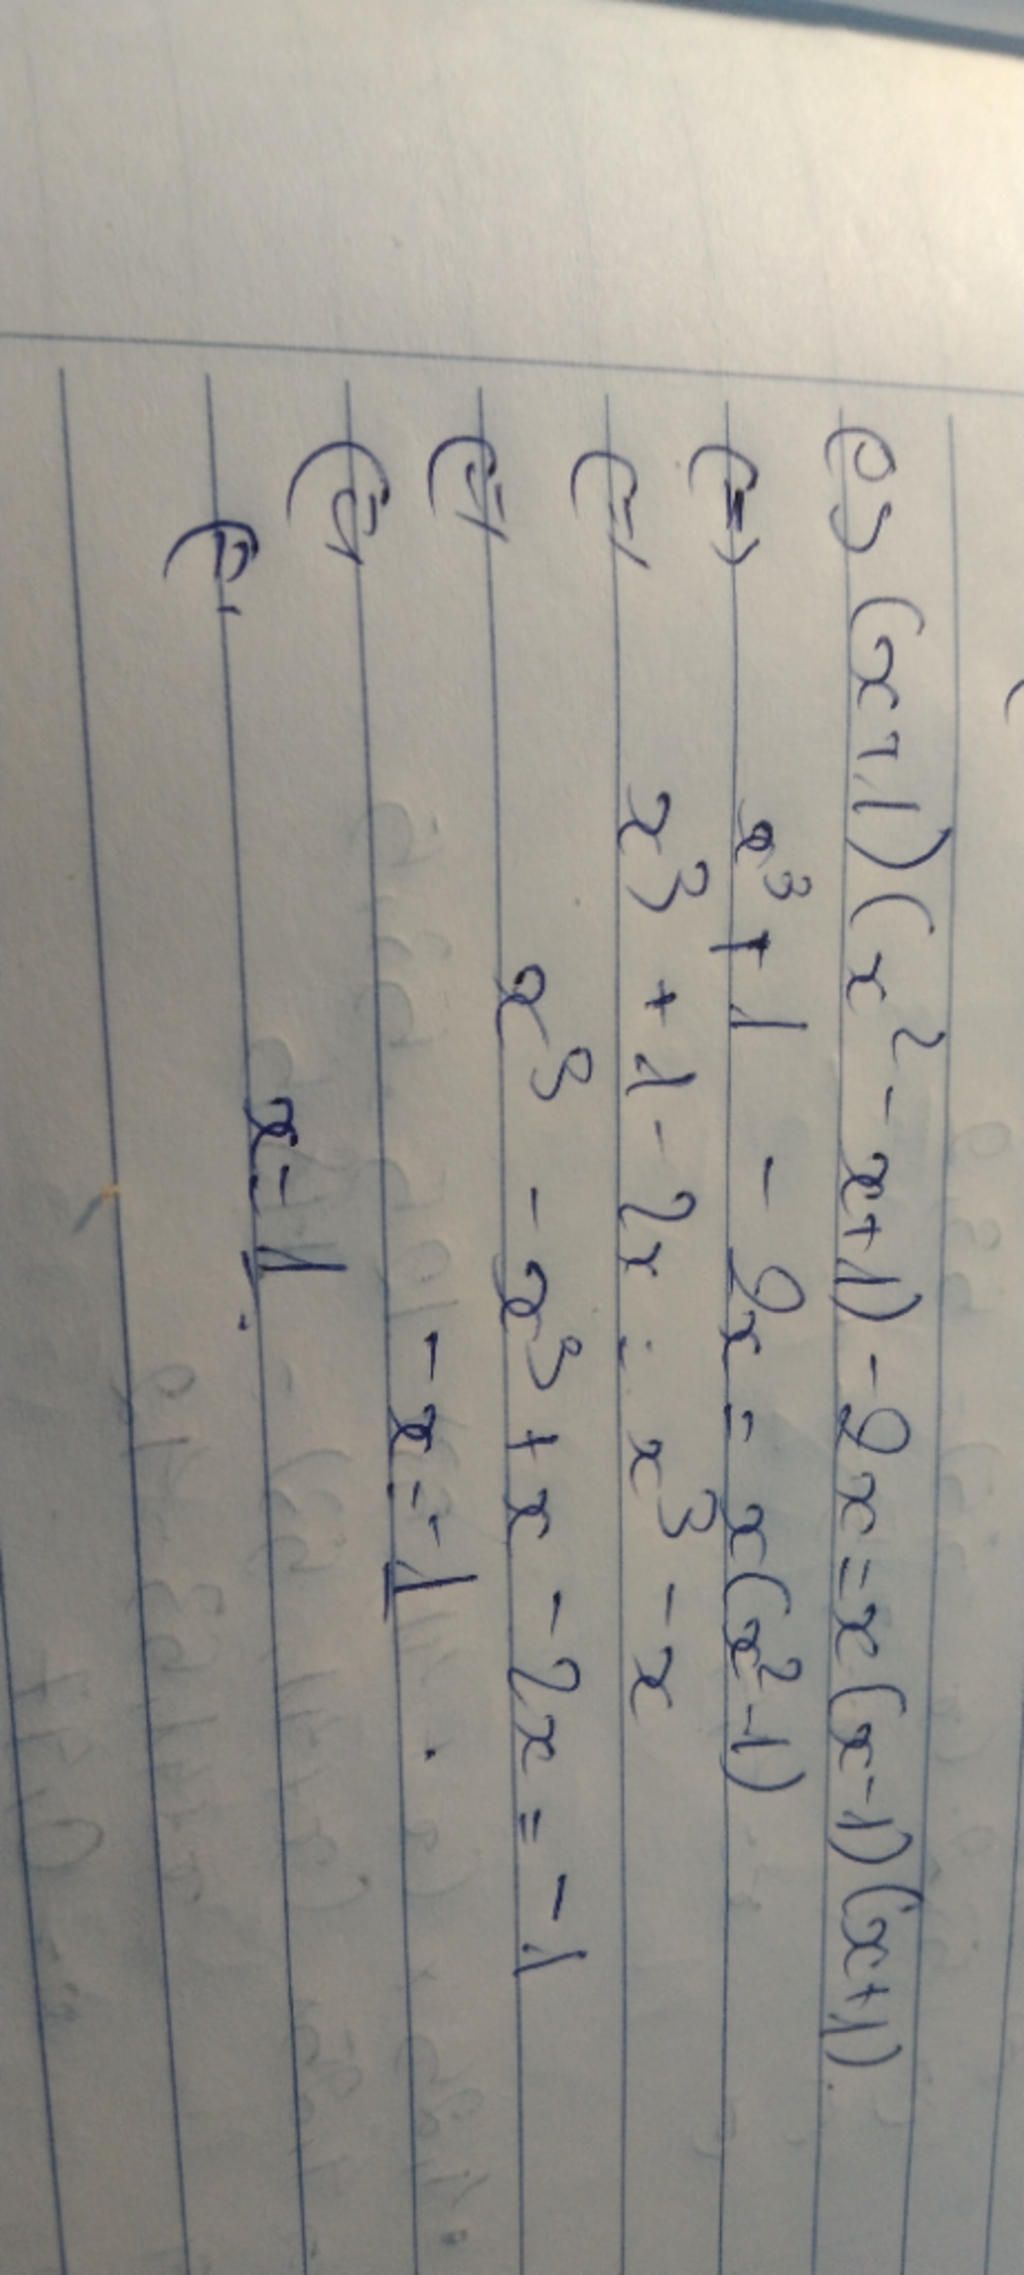 e) (x+1)(x² - x+1) - 2x = x(x-1)(x+1)
(=) x³ + 1 - 2x = x(x²-1)
(=) x³ + 1 - 2x = x³ - x
(=) x³ - x³ + x - 2x = -1
(=) -x = -1
(=) x = 1